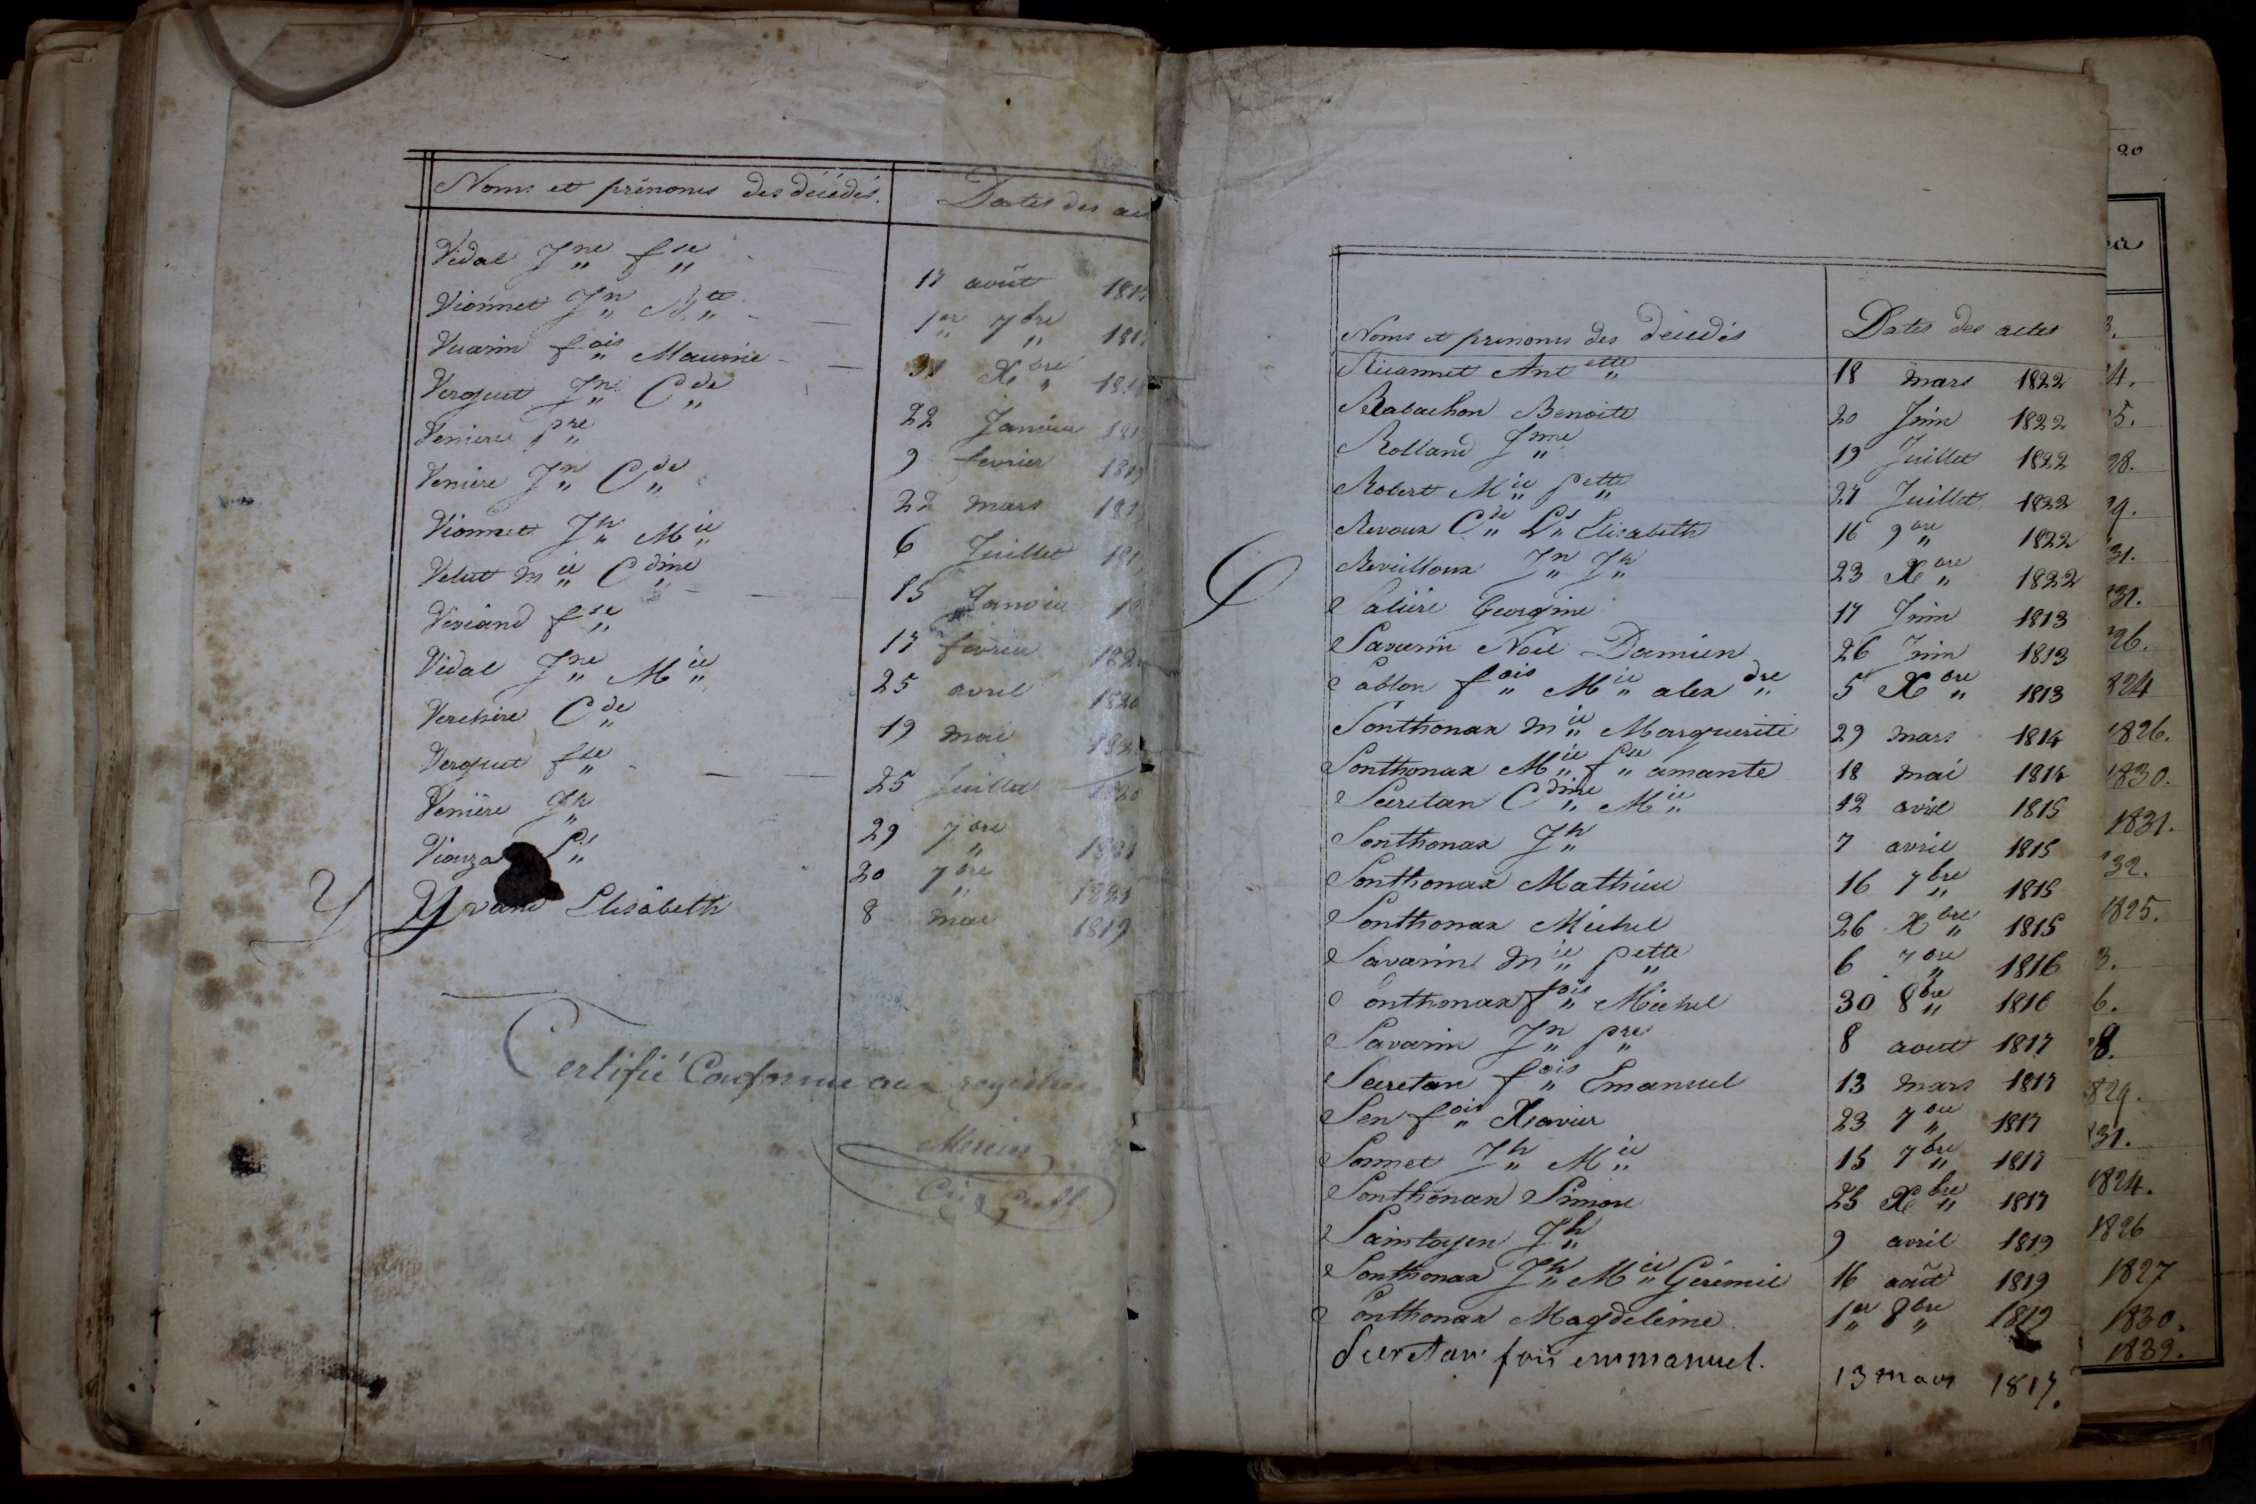 Noms et prénoms des décédés. Dates des
Vidal Jne fse 17 août 181
Vionnet Jn Bte 1er 7bre 181
Vuarin fois Maurice 31 Xbre 181
Verguet Jne Cde 22 Janvier 181
Venière pre 9 fevrier 1819
Venière Jn Cde 22 mars 181
Vionnet Jh Mie 6 Juillet 181
Velut mie Cdine 15 Janvier
fse 17 fevrier 182
Vidal Jne Mie 25 avril 1820
Verchère Cde 19 mai 182
Verguet fse 25 Juillet 1820
Venière Jh 29 7bre 1821
20 7bre 1821
Y
Elisabeth 8 mai 1819
Certifié Conforme aux registres
Mercier
20
Noms et prenoms des décédés Dates des actes
Antette 18 mars 1822
Rabachon Benoite 20 Juin 1822
Rolland Jme 19 Juillet 1822
Robert Mie pette 27 Juillet 1822
Revoux Cde Ls Elisabeth 16 9bre 1822
Revilloux Jn Jh 23 Xbre 1822
S
Salière Georgine 17 Juin 1813
Savarin Noël Damien 26 Juin 1813
Sablon fois Mie alexdre 5 Xbre 1813
Sonthonax mie Marguerite 29 mars 1814
Sonthonax Mie fse amante 18 mai 1814
Secretan Cdine Mie 12 avril 1815
Sonthonax Jh 7 avril 1815
Sonthonax Mathieu 16 7bre 1815
Sonthonax Michel 26 Xbre 1815
Savarin mie pette 6 7bre 1816
Sonthonax fois Michel 30 8bre 1816
Savarin Jn pre 8 aout 1817
Secretan fois Emanuel 13 mars 1817
Sen fois Xavier 23 7bre 1817
Sornet Jh Mie 15 7bre 1817
Sonthonax Simon 25 Xbre 1817
Saintoyen Jh 9 avril 1819
Sonthonax Jh Mie Gérémie 16 août 1819
Sonthonax Magdeleine 1er 8bre 1819
Secretan fois emmanuel. 13 mars 1817.
1826.
1830.
1831.
1825.
1824.
1826
1827
1830.
1839.